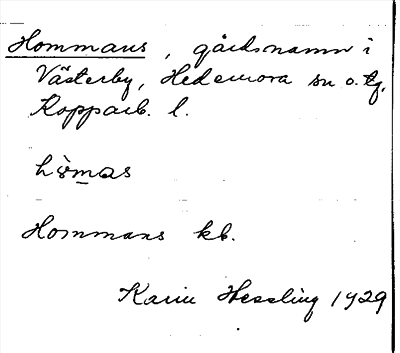 Hommans, gårdsnamn i
Västerby, Hedemora sn o. tg.
Kopparb. l.
Hommans kb.
Karin Hessling 1929